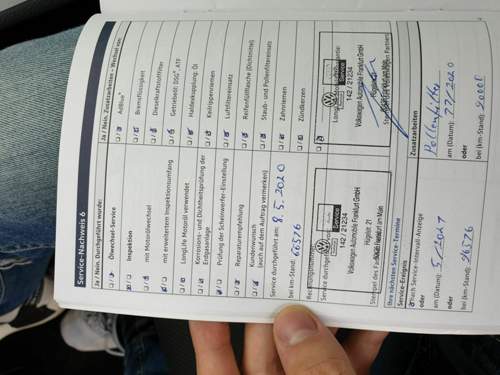 Service-Nachweis 6
Ja / Nein, Durchgeführt wurde:
Ölwechsel-Service
Inspektion
mit Motorölwechsel
mit erweitertem Inspektionsumfang
LongLife Motoröl verwendet
Korrosions- und Dichtheitsprüfung der
Erdgasanlage
Prüfung der Scheinwerfer-Einstellung
Reparaturempfehlung
Kundenwunsch
(auch auf dem Auftrag vermerken)
Service durchgeführt am: 8.5.2020
bei km-Stand: 66576
Volkswagen Automobile Frankfurt GmbH
142 / 21234
Ihre nächsten Service-Termine
Service-Ereignis
Nach Service-Intervall-Anzeige
oder
am (Datum): 5/2021
oder
bei (km-Stand): 96576
Ja / Nein, Zusatzarbeiten – Wechsel von:
AdBlue®
Bremsflüssigkeit
Dieselkraftstofffilter
Getriebeöl: DSG®, ATF
Haldexkupplung, Öl
Keilrippenriemen
Luftfiltereinsatz
Reifenfüllflasche (Dichtmittel)
Staub- und Pollenfiltereinsatz
Zahnriemen
Zündkerzen
142 / 21234
Volkswagen Automobile Frankfurt GmbH
Zusatzarbeiten
Pollenfilter
am (Datum):
oder
bei (km-Stand):